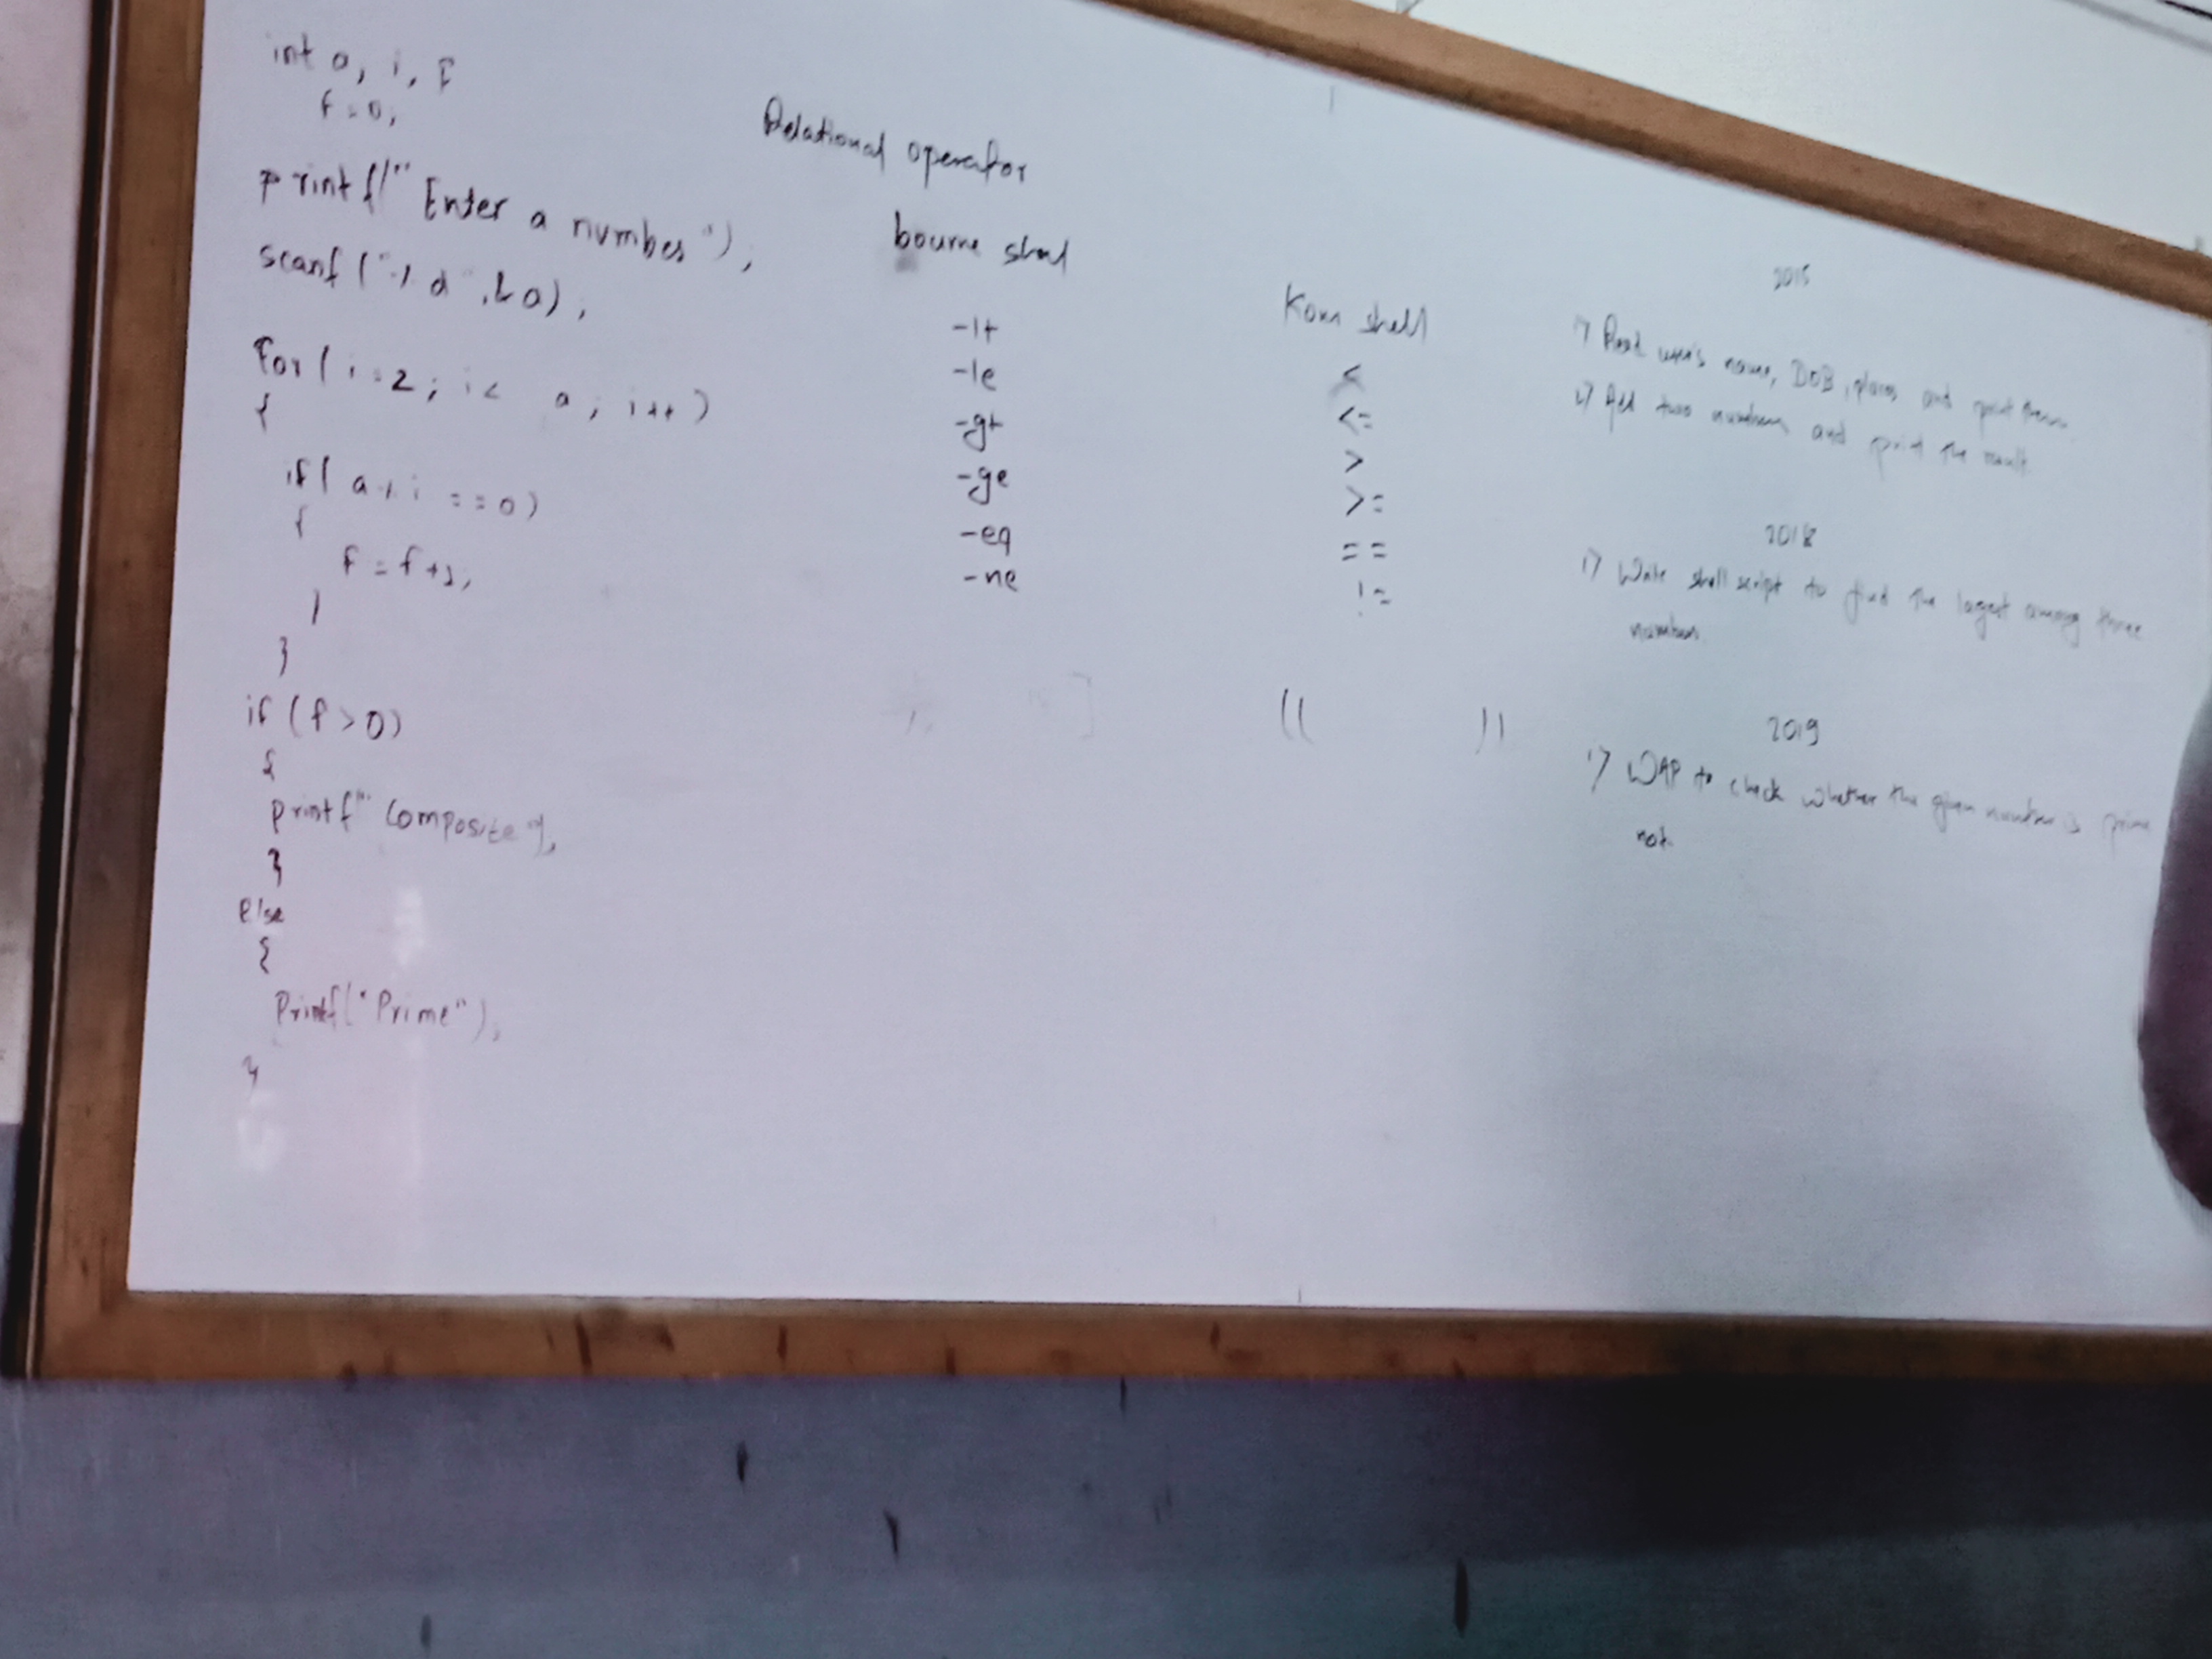 int a, i, f
f=0;
printf("Enter a number");
scanf("%d",&a);
for(i=2; i< a; i++)
{
if(a%i ==0)
{
f=f+1;
}
}
if (f>0)
{
printf"Composite");
}
else
{
Printf("Prime");
}
Relational operator
bourne shell
-lt
-le
-gt
-ge
-eq
-ne
]
Korn shell
<
<=
>
>=
==
!=
(( ))
2015
1) Read user's name, DOB, places and print them.
2) Add two numbers and print the result.
2018
1) Write shell script to find the largest among three
numbers
2019
1) WAP to check whether the given number is prime
not.